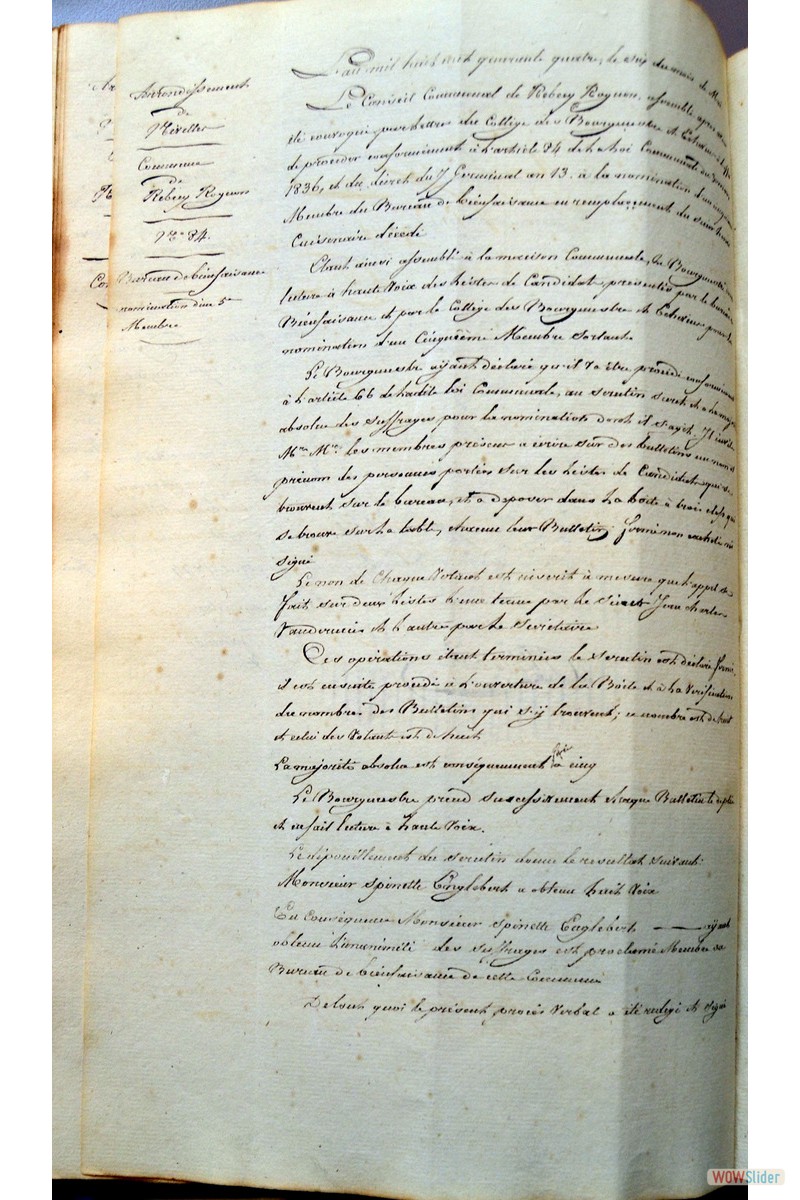 Arrondissement
de
Nivelles
Commune
de
Rebecq Rognon
N° 84.
Bureau de bienfaisance
nomination d'un 5e
Membre
L'an mil huit cent quarante quatre, le six du mois de
Le Conseil Communal de Rebecq Rognon, assemblé après avoir
été convoqué par lettre du Collège des Bourgmestre et Echevins
de procéder conformément à l'article 84 de la loi Communale du
1836, et du décret du 7 Germinal an 13. à la nomination d'un
Membre du Bureau de bienfaisance en remplacement du sieur
Cuisenaire décédé
Etant ainsi assemblé à la maison Communale, le Bourgmestre
lecture à haute Voix des Listes de Candidats, présentés par le bureau
Bienfaisance et par le Collège des Bourgmestre et Echevins pour la
nomination d'un Cinquième Membre sortant
Le Bourgmestre ayant déclaré qu'il va être procédé conformément
à l'article 66 de ladite loi Communale, au scrutin secret et à la
absolue des suffrages, pour la nomination dont il s'agit. Il
Mrs Mrs les membres présens a écrire sur des bulletins
prénom des personnes portées sur les Listes de Candidats qui se
trouvent sur le bureau, et a déposer dans la boite à trois clefs qui
se trouve sur la table, chacun leur Bulletin fermé non cacheté ni
signé
Le nom de Chaque Votant est inscrit à mesure que l'appel se
fait, sur deux Listes l'une tenue par le sieur Jean Charles
et l'autre par le Secrétaire
Ces opérations étant terminées le scrutin est déclaré fermé,
il est ensuite procédé à l'ouverture de la Boite et à la Vérification
du nombre des Bulletins qui s'y trouvent; ce nombre est de huit
et celui des Votant est de huit
La majorité absolue est conséquemment fixée à cinq
Le Bourgmestre prend successivement chaque Bulletin le déplie
et en fait lecture à haute Voix.
Le dépouillement du scrutin donne le resultat suivant:
Monsieur Spinette Englebert a obtenu huit Voix
En conséquence Monsieur Spinette Englebert ayant
obtenu l'unanimité des suffrages est proclamé Membre du
Bureau de bienfaisance de cette Commune
De tout quoi le présent procès Verbal a été redigé et signé
WOWSlider